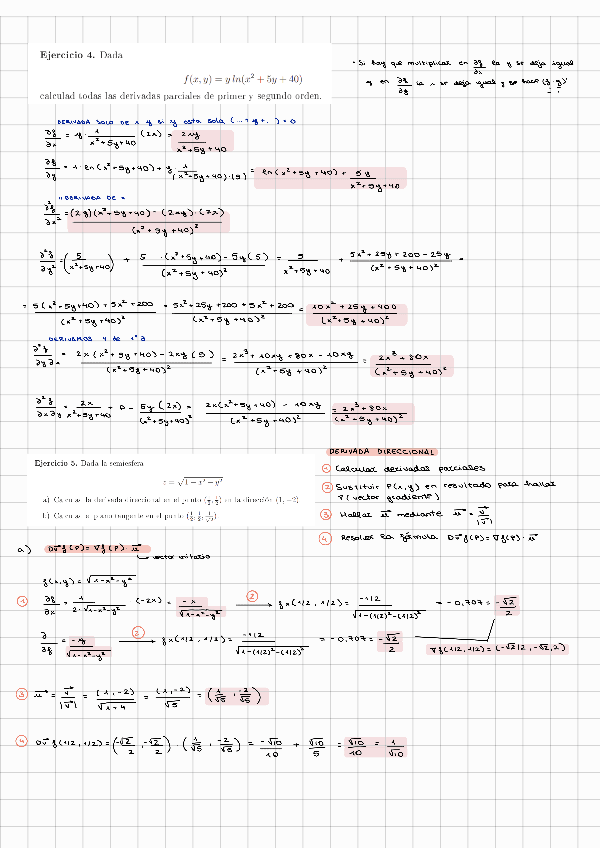 Ejercicio 4. Dada
f(x, y) = y ln(x² + 5y + 40)
calculad todas las derivadas parciales de primer y segundo orden.
· Si hay que multiplicar en ∂f/∂x la y se deja igual
y en ∂f/∂y la x se deja igual y se hace
DERIVADA SOLO DE x y si y esta sola (... + y + .) = 0
∂f/∂x = y · 1/(x²+5y+40) (2x) = 2xy/(x²+5y+40)
∂f/∂y = 1 · ln(x²+5y+40) + y 1/(x²+5y+40) · (5) = ln(x²+5y+40) + 5y/(x²+5y+40)
∂²f/∂x² = (2y)(x²+5y+40) - (2xy) · (2x)/(x²+5y+40)²
∂²f/∂y² = (5/(x²+5y+40)) + 5 · (x²+5y+40) - 5y(5)/(x²+5y+40)² = 5/(x²+5y+40) + 5x²+25y+200-25y/(x²+5y+40)² =
= 5(x²+5y+40) + 5x²+200/(x²+5y+40)² = 5x²+25y+200+5x²+200/(x²+5y+40)² = 10x²+25y+400/(x²+5y+40)²
DERIVAMOS y de 1ª ∂
∂²f/∂y∂x = 2x(x²+5y+40) - 2xy(5)/(x²+5y+40)² = 2x³+10xy+80x-10xy/(x²+5y+40)² = 2x³+80x/(x²+5y+40)²
∂²f/∂x∂y = 2x/(x²+5y+40) + 0 - 5y(2x)/(x²+5y+40)² = 2x(x²+5y+40) - 10xy/(x²+5y+40)² = 2x³+80x/(x²+5y+40)²
Ejercicio 5. Dada la semiesfera
z = √(1 - x² - y²)
a) Calculad la derivada direccional en el punto (1/2, 1/2) en la dirección (1, -2)
b) Calculad el plano tangente en el punto (1/2, 1/2, 1/√2)
DERIVADA DIRECCIONAL
① Calcular derivadas parciales
② Sustituir P(x,y) en resultado para hallar
∇(vector gradiente)
③ Hallar u⃗ mediante u⃗ = v⃗/|v⃗|
④ Resolver la fórmula Dv⃗ f(P) = ∇f(P) · u⃗
a) Dv⃗ f(P) = ∇f(P) · u⃗
vector unitario
f(x,y) = √(1-x²-y²)
① ∂f/∂x = 1/(2·√(1-x²-y²)) (-2x) = -x/√(1-x²-y²) ② → fx(1/2, 1/2) = -1/2/√(1-(1/2)²-(1/2)²) = -0,707 = -√2/2
∂/∂f = -y/√(1-x²-y²) ② → fx(1/2, 1/2) = -1/2/√(1-(1/2)²-(1/2)²) = -0,707 = -√2/2
∇f(1/2, 1/2) = (-√2/2, -√2/2)
③ u⃗ = v⃗/|v⃗| = (1, -2)/√(1+4) = (1, -2)/√5 = (1/√5, -2/√5)
④ Dv⃗ f(1/2, 1/2) = (-√2/2, -√2/2) · (1/√5, -2/√5) = -√10/10 + √10/5 = √10/10 = 1/√10